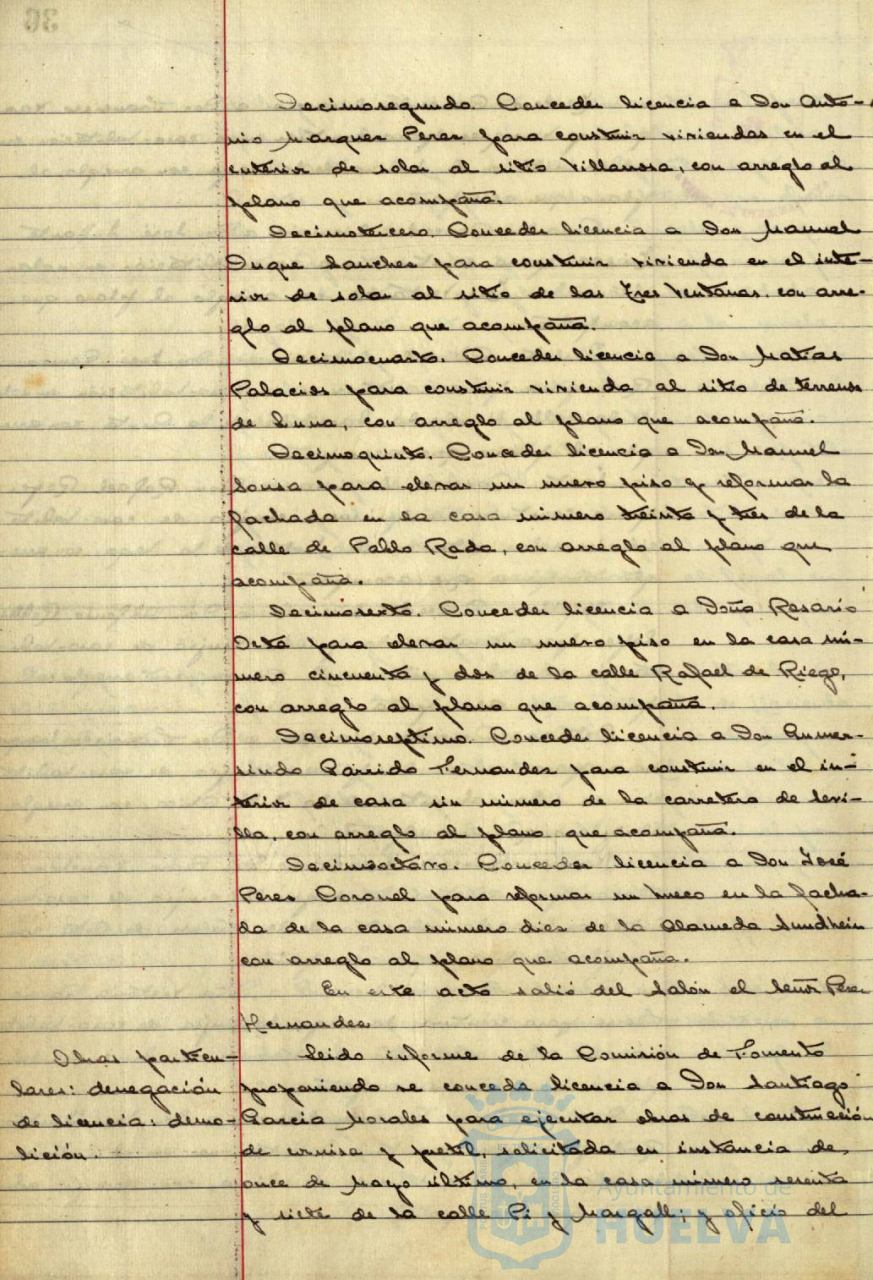 36
Decimosegundo. Conceder licencia a Don Anto-
nio Marquez Perez para construir viviendas en el
interior de solar al sitio Villarrosa, con arreglo al
plano que acompaña.
Decimotercero. Conceder licencia a Don Manuel
Duque Sanchez para construir vivienda en el inte-
rior de solar al sitio de las Tres Ventanas, con arre-
glo al plano que acompaña.
Decimocuarto. Conceder licencia a Don Matias
Palacios para construir vivienda al sitio de terrenos
de Luna, con arreglo al plano que acompaña.
Decimoquinto. Conceder licencia a Don Manuel
Sousa para elevar un nuevo piso y reformar la
fachada en la casa número treinta y tres de la
calle de Pablo Rada, con arreglo al plano que
acompaña.
Decimosexto. Conceder licencia a Doña Rosario
Orta para elevar un nuevo piso en la casa nú-
mero cincuenta y dos de la calle Rafael de Riego,
con arreglo al plano que acompaña.
Decimoseptimo. Conceder licencia a Don Gumer-
sindo Garrido Fernandez para construir en el in-
terior de casa sin número de la carretera de Sevi-
lla, con arreglo al plano que acompaña.
Decimooctavo. Conceder licencia a Don José
Perez Coronel para reformar un hueco en la facha-
da de la casa número diez de la Alameda Sundhein
con arreglo al plano que acompaña.
En este acto salió del Salón el Señor Perez
Hernandez
Obras particu-
lares: denegación
de licencia: demo-
lición.
Leido informe de la Comisión de Fomento
proponiendo se conceda licencia a Don Santiago
Garcia Morales para ejecutar obras de construcción
de cornisa y pretil, solicitada en instancia de
once de Mayo último, en la casa número sesenta
y siete de la calle Pi y Margall; y oficio del
Ayuntamiento de
HUELVA